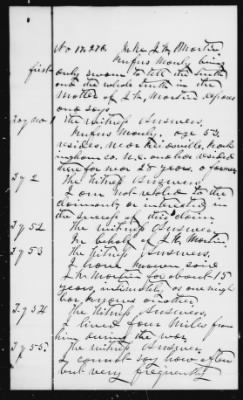 No 12,256 J. M. Martin
Rufus Manly being
first
only sworn to tell the truth
and the whole truth in the
Matter of J. M. Martin deposes
and says.
The Witness Answers,
Rufus Manly. age 52
resides. near Reidsville, Rock-
ingham Co. N.C. and has resided
there for near 25 years. a farmer
Int 2 The Witness Answers.
I am not related to the
claimant, or interested in
the success of this claim.
Int 52 The Witness Answers.
In behalf of J. M. Martin.
Int 53 The Witness Answers.
I have known said
J. M. Martin for about 15
years, intimately, as one neigh
bor, knows another
Int 54 The Witness Answers.
I lived four miles from
him during the war
Int 55 The Witness Answers
I cannot say how often
but very frequently